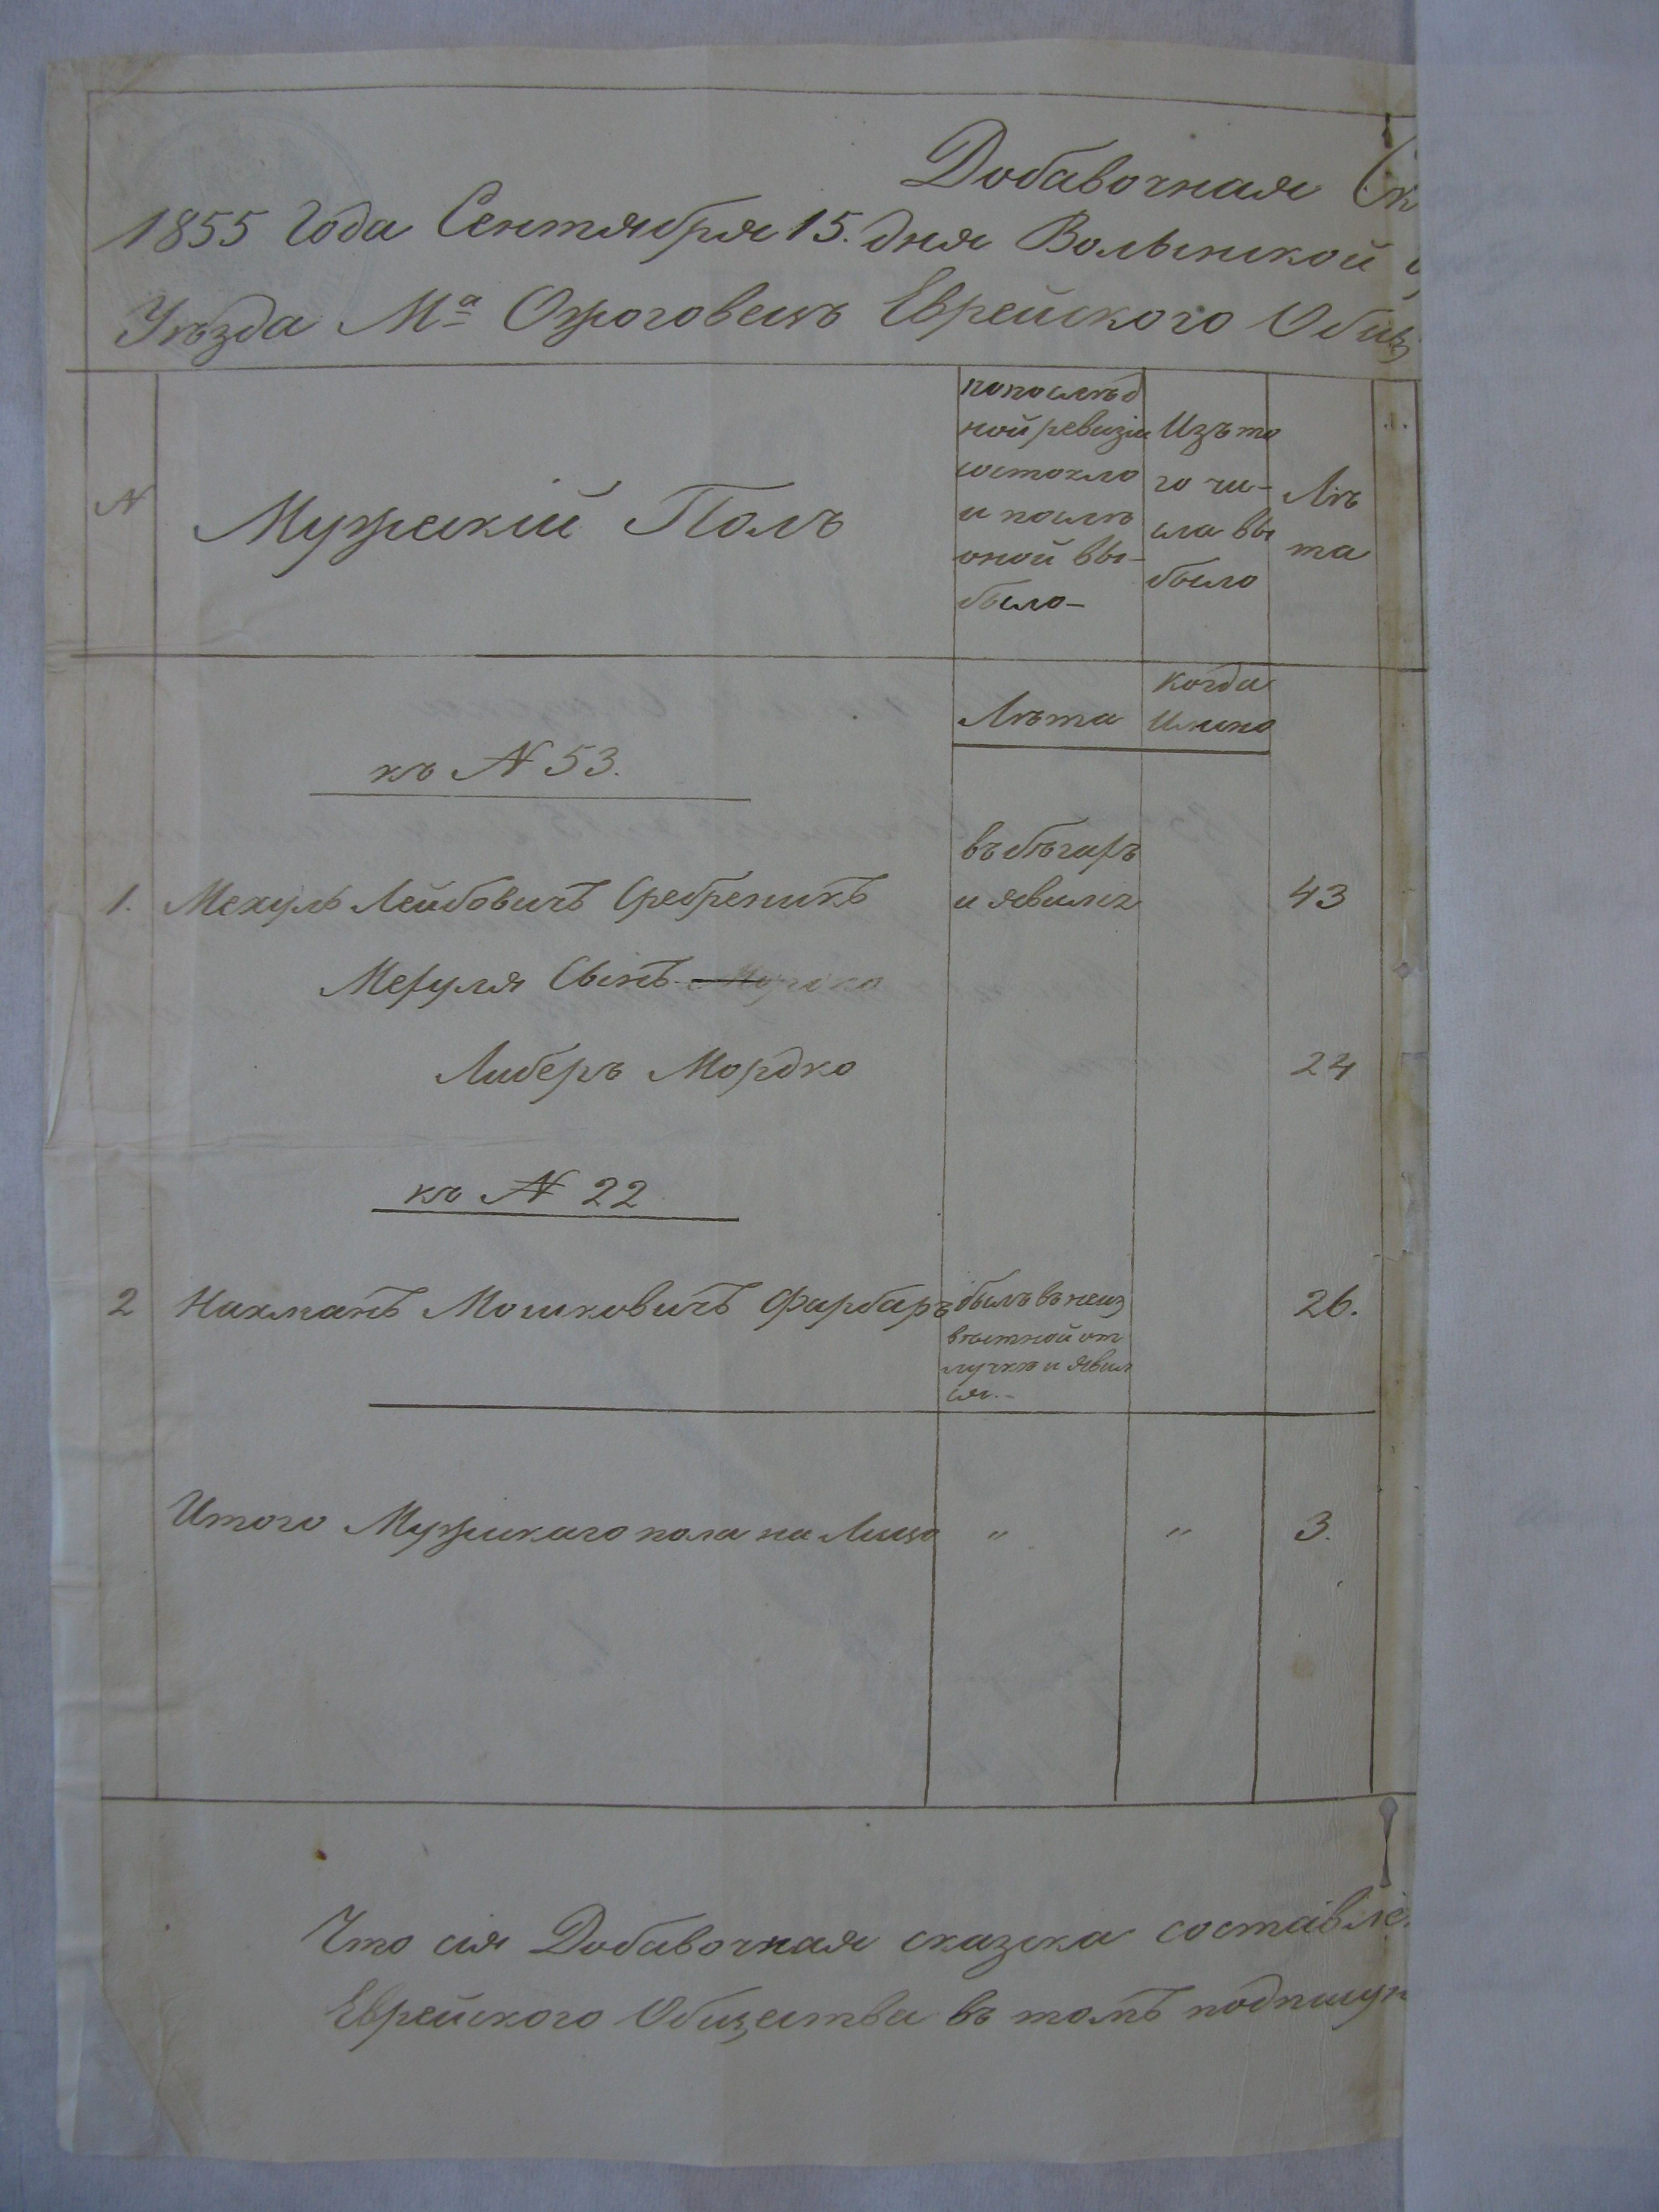 Добавочная Ск
1855 Года Сентября 15. дня Волынской
Уѣзда Мª Ожоговецъ Еврейского Общ
N
Мужескій Полъ
попослѣд
ной ревизіи
состояло
и послѣ
оной вы-
было-
Изъ то
го чи-
сла вы
было
Лѣ
та
Лѣта
когда
Имѣно
къ N 53.
1. Мехуль Лейбовичъ Сребреникъ
въ бѣгахъ
и явился
43
Мехуля Сынъ
Либеръ Мордко
24
къ N 22
2 Нахманъ Мошковичъ Фарбаръ
былъ въ неиз
вѣстной от
лучкѣ и явил
ся.-
26.
Итого Мужскаго пола на Лицо " " 3.
Что сія Добавочная сказка составле
Еврейского Общества въ томъ подпису